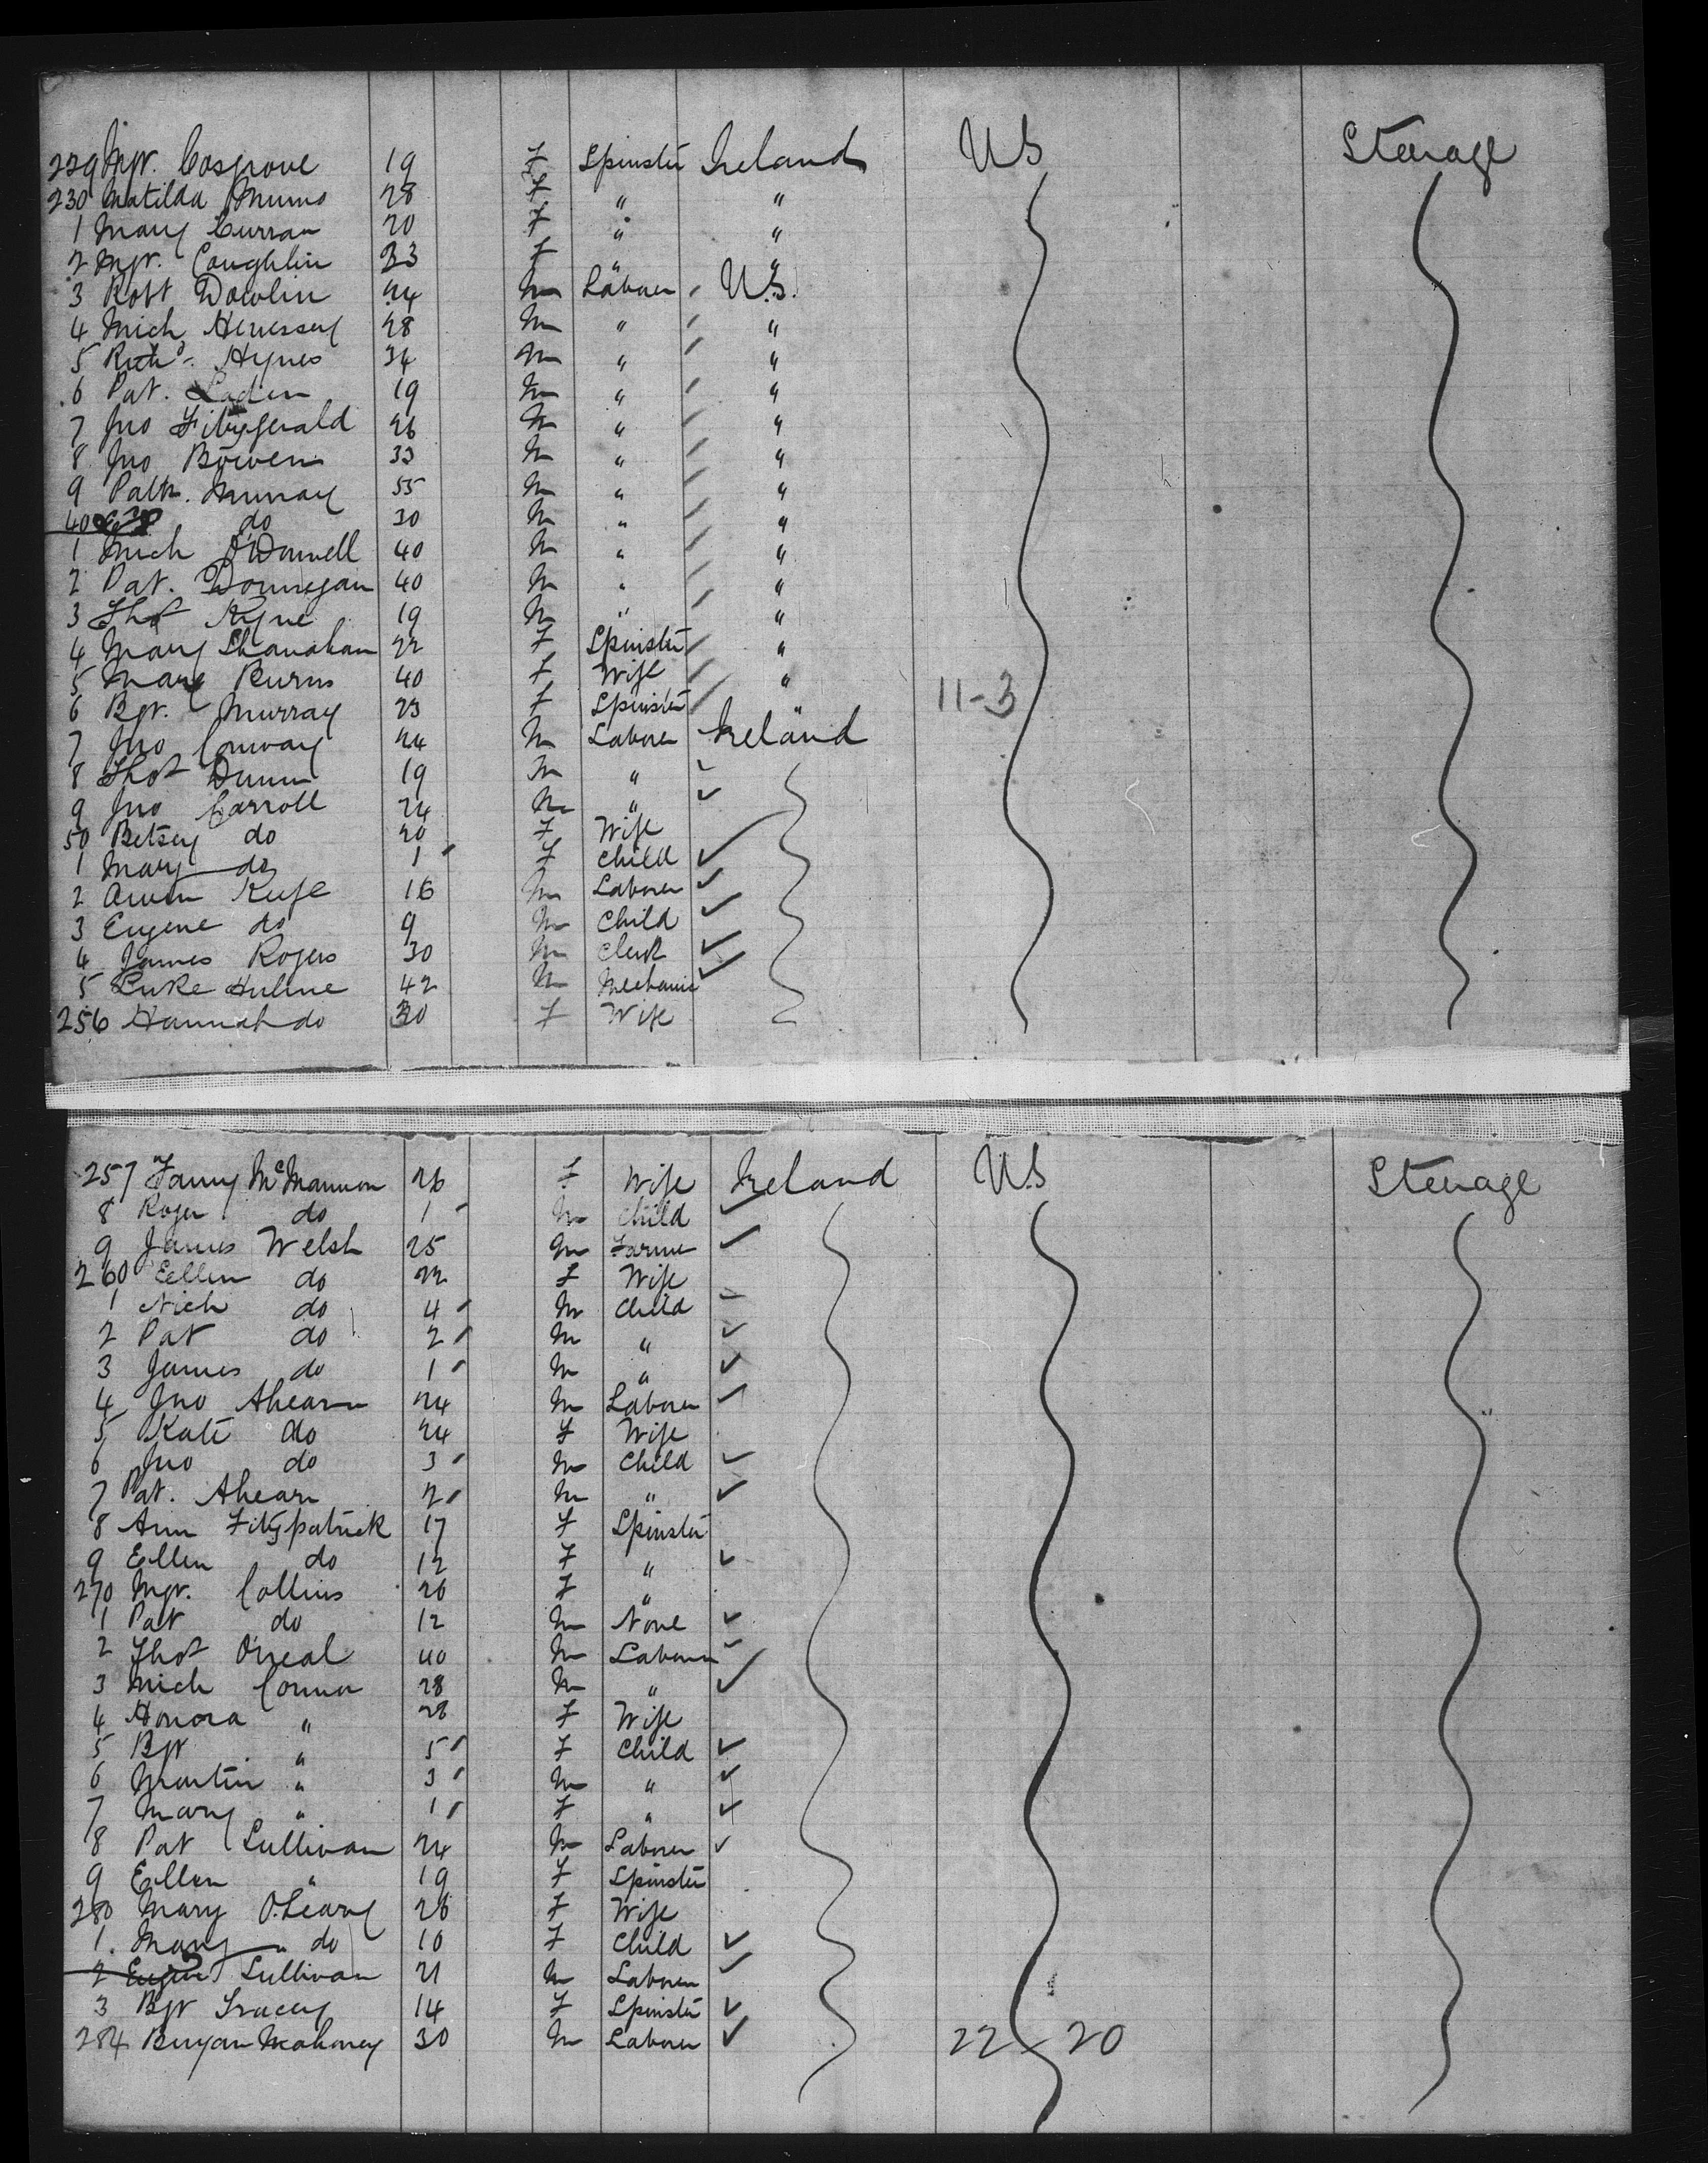 229 Mgr. Cosgrove 19 F Spinster Ireland US Steerage
230 Matilda Munns 28 F " "
1 Mary Curran 20 F " "
2 Mgr. Coughlin 23 F " "
3 Robt Dowlin 24 M Laborer U.S.
4 Mich Henessey 28 M " "
5 Richd. Hynes 34 M " "
6 Pat. 19 M " "
7 Jno Fitzgerald 26 M " "
8 Jno Bowen 33 M " "
9 Patk. Murray 55 M " "
40 do 30 M " "
1 Mich O'Donnell 40 M " "
2 Pat. Donnegan 40 M " "
3 Thos Kyne 19 M " "
4 Mary Shanahan 22 F Spinster "
5 Mary Burns 40 F Wife "
6 Bgt. Murray 23 F Spinster " 11-3
7 Jno Conway 24 M Laborer Ireland
8 Thos Dunn 19 M "
9 Jno Carroll 24 M "
50 Betsey do 20 F Wife
1 Mary do 1 F Child
2 Owen Kufe 16 M Laborer
3 Eugene do 9 M Child
4 James Rogers 30 M Clerk
5 Luke Hulme 42 M Mechanic
256 Hannah do 30 F Wife
257 Fanny McMannon 26 F Wife Ireland U.S Steerage
8 Roger do 1 M Child
9 James Welsh 25 M Farmer
260 Ellen do 22 F Wife
1 Mich do 4 M Child
2 Pat do 2 M "
3 James do 1 M "
4 Jno Ahearn 24 M Laborer
5 Kate do 24 F Wife
6 Jno do 3 M Child
7 Pat. Ahearn 2 M "
8 Ann Fitzpatrick 17 F Spinster
9 Ellen do 12 F "
270 Mgr. Collins 20 F "
1 Pat do 12 M None
2 Thos O'Neal 40 M Laborer
3 Mich Connor 28 M "
4 Honora " 28 F Wife
5 Bgt " 5 F Child
6 Martin " 3 M "
7 Mary " 1 F "
8 Pat Sullivan 24 M Laborer
9 Ellen " 19 F Spinster
280 Mary O'Leary 26 F Wife
1. Mary " do 10 F Child
2 Eugene Sullivan 21 M Laborer
3 Bgt Tracey 14 F Spinster
284 Bryan Mahoney 30 M Laborer 22 20